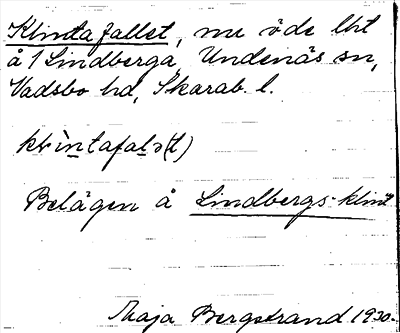 Klintafallet, nu öde lht
å 1 Lindberga, Undenäs sn,
Vadsbo hd, Skarab. l.
klìntafalə(t)
Belägen å Lindbergs-klint
Maja Bergstrand 1930.